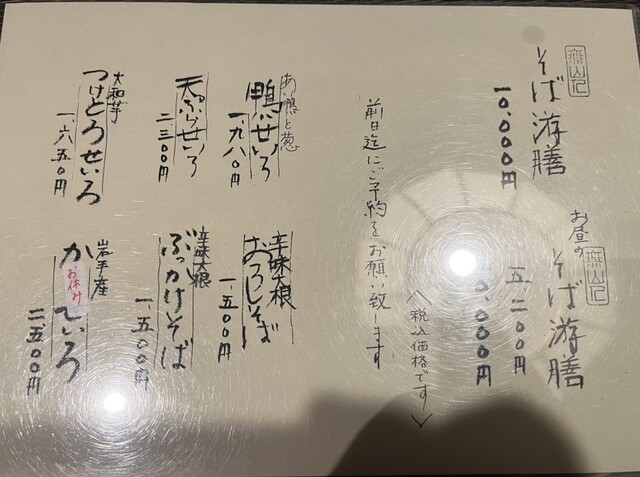 そば游膳
一〇,〇〇〇円
お昼の
そば游膳
五,二〇〇円
〇,〇〇〇円
前日迄にご予約をお願い致します
<税込価格です>
あい鴨と葱
鴨せいろ
一,九八〇円
天ぷらせいろ
二,三〇〇円
大和芋
つけとろせいろ
一,六五〇円
辛味大根
おろしそば
一,五〇〇円
辛味大根
ぶっかけそば
一,五〇〇円
岩手産
か
お休み
せいろ
二,五〇〇円